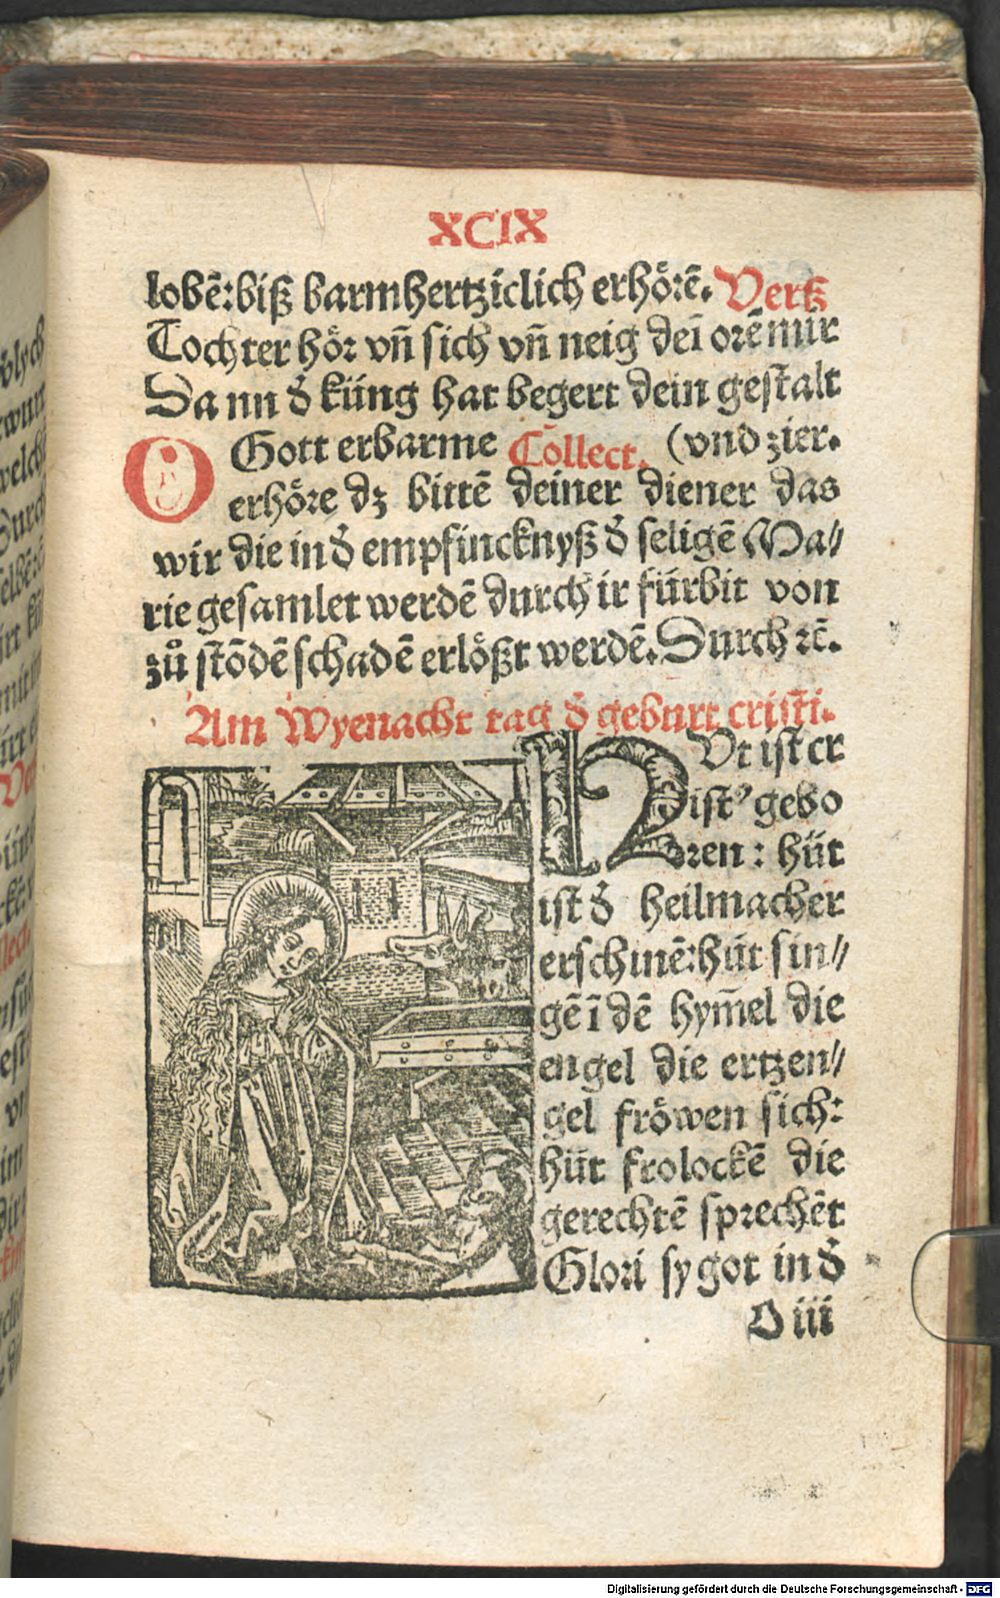 XCIX
lobē: biß barmhertziclich erhörē. Verß
Tochter hör vn̄ sich vn̄ neig deī orē mir
Dann d̄ küng hat begert dein gestalt
O Gott erbarme Collect. (vnd zier.
erhöre dz bittē deiner diener das
wir die in d̄ empfincknyß d̄ seligē Ma//
rie gesamlet werdē durch ir fürbit von
zů stōdē schadē erlößt werdē. Durch ꝛc̄.
Am Wyenacht tag d̄ geburt cristi.
HVt ist cr
istꝰ gebo
ren: hüt
ist d̄ heilmacher
erschinē: hüt sin//
gē ī dē hym̄el die
engel die ertzen//
gel fröwen sich:
hüt frolockē die
gerechtē sprechēt
Glori sy got in d̄
O iii
Digitalisierung gefördert durch die Deutsche Forschungsgemeinschaft - DFG